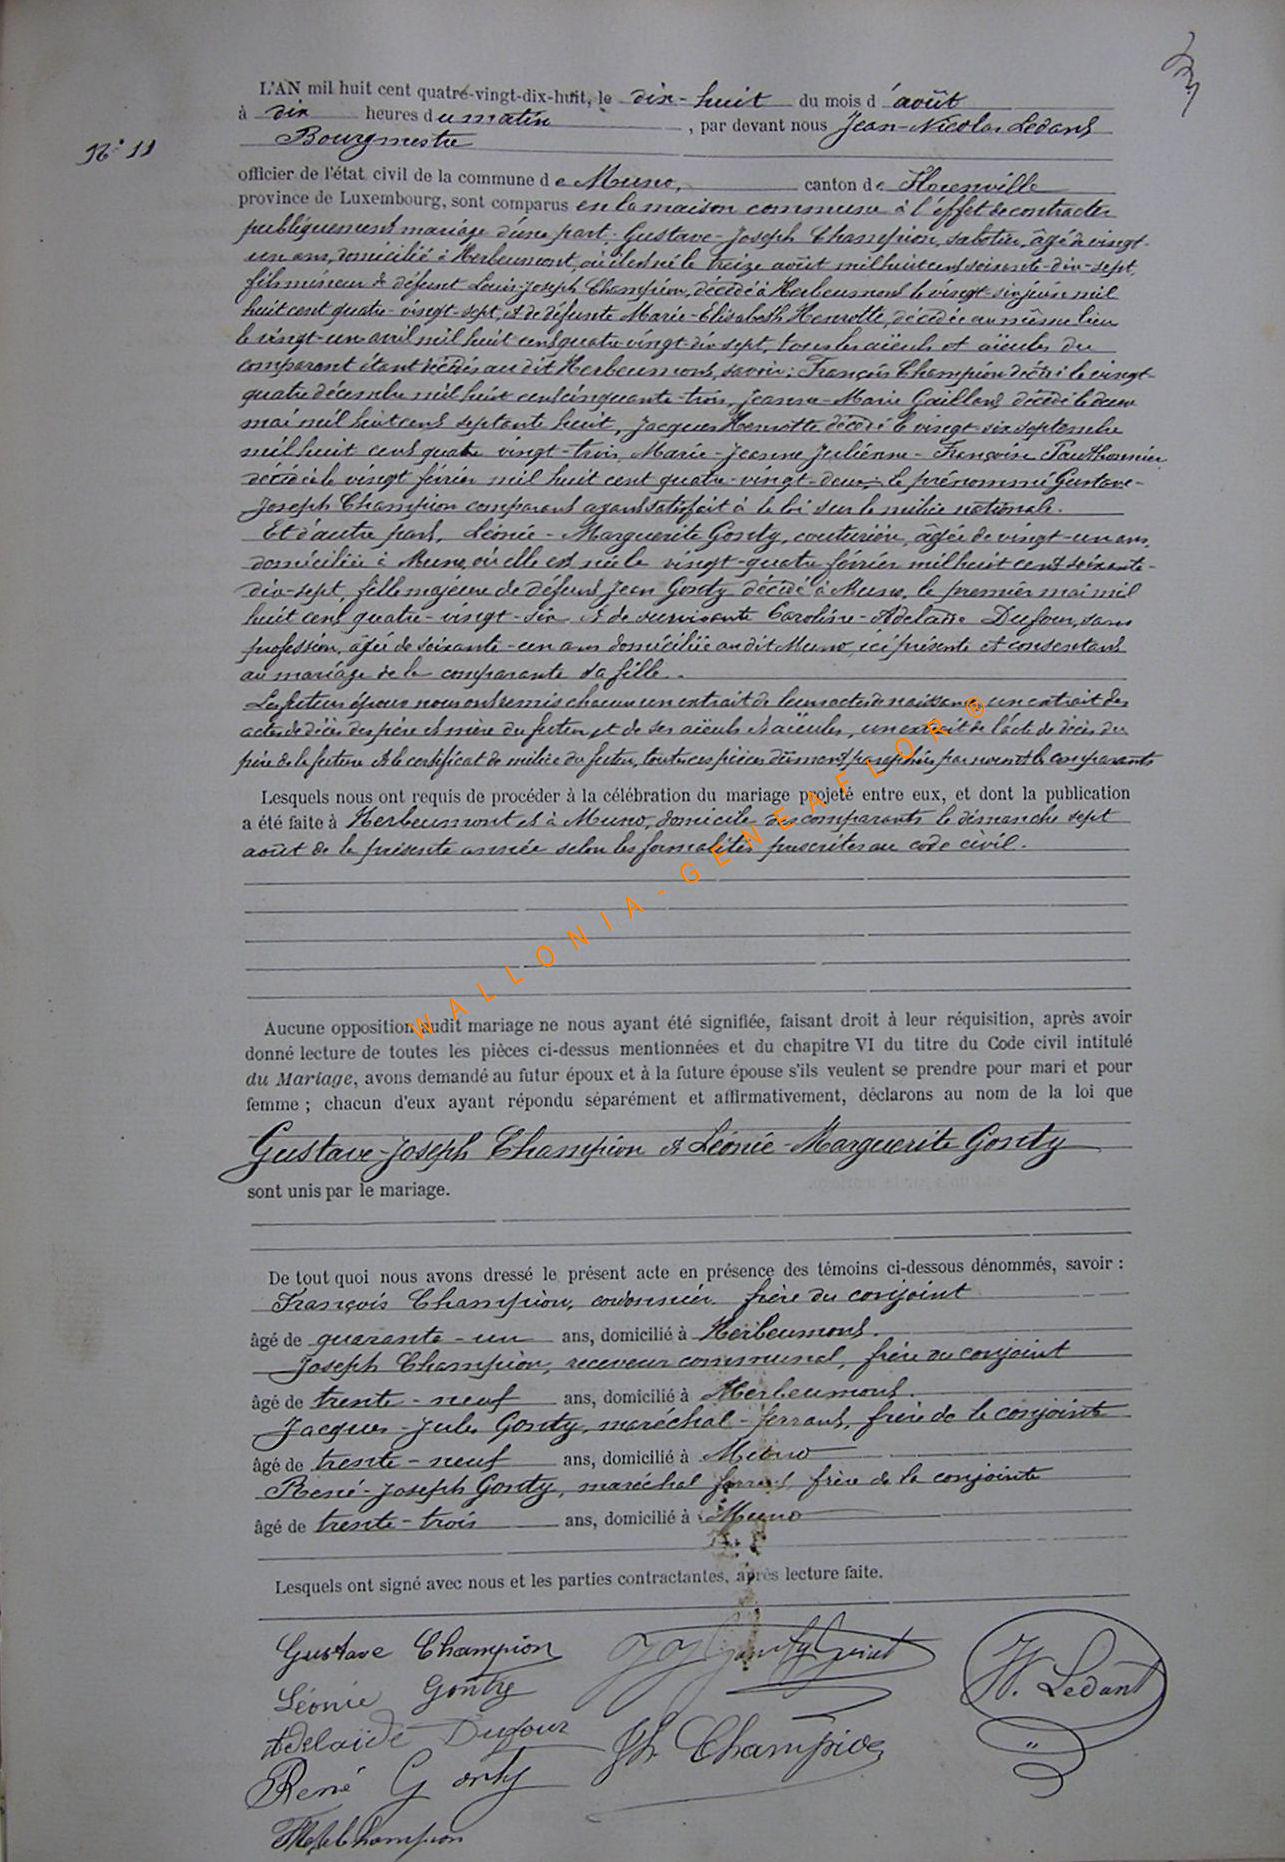 L'AN mil huit cent quatre-vingt-dix-huit, le dix-huit du mois d'août
à dix heures du matin, par devant nous Jean-Nicolas Ledant
Bourgmestre
N° 11
officier de l'état civil de la commune de Muno, canton de Florenville
province de Luxembourg, sont comparus en la maison commune à l'effet de contracter
publiquement mariage d'une part: Gustave-Joseph Champion, sabotier, âgé de vingt-
un ans, domicilié à Herbeumont, où il est né le treize août mil huit cent soixante-dix-sept,
fils mineur de défunt Louis-Joseph Champion, décédé à Herbeumont le vingt-six juin mil
huit cent quatre-vingt-sept, et de défunte Marie-Elisabeth Henrotte, décédée au même lieu
le vingt-un avril mil huit cent quatre vingt dix sept, tous les aïeuls et aïeules du
comparant étant décédés au dit Herbeumont, savoir: François Champion décédé le vingt-
quatre décembre mil huit cent cinquante-trois, Jeanne-Marie Gaillard décédé le deux
mai mil huit cent septante huit, Jacques Henrotte décédé le vingt six septembre
mil huit cent quatre vingt-trois, Marie-Jeanne Julienne-Françoise
décédée le vingt février mil huit cent quatre-vingt-deux; le prénommé Gustave-
Joseph Champion comparant ayant satisfait à la loi sur la milice nationale.
Et d'autre part, Léonie-Marguerite Gonty, couturière, âgée de vingt-un ans,
domiciliée à Muno, où elle est née le vingt-quatre février mil huit cent soixante-
dix-sept, fille majeure de défunt Jean Gonty décédé à Muno, le premier mai mil
huit cent quatre-vingt-six et de survivante Caroline-Adelaïde Dufour, sans
profession, âgée de soixante-un ans domiciliée au dit Muno, ici présente et consentant
au mariage de la comparante sa fille.
Les futurs époux nous ont remis chacun un extrait de leurs actes de naissance, un extrait des
actes de décès des père et mère du futur, et de ses aïeuls et aïeules, un extrait de l'acte de décès du
père de la future et le certificat de milice du futur, toutes ces pièces dûment paraphées par nous et les comparants
Lesquels nous ont requis de procéder à la célébration du mariage projeté entre eux, et dont la publication
a été faite à Herbeumont et à Muno, domicile des comparants le dimanche sept
août de la présente année selon les formalités prescrites au code civil.
WALLONIA-GENEAFLOR®
Aucune opposition audit mariage ne nous ayant été signifiée, faisant droit à leur réquisition, après avoir
donné lecture de toutes les pièces ci-dessus mentionnées et du chapitre VI du titre du Code civil intitulé
du Mariage, avons demandé au futur époux et à la future épouse s'ils veulent se prendre pour mari et pour
femme ; chacun d'eux ayant répondu séparément et affirmativement, déclarons au nom de la loi que
Gustave-Joseph Champion et Léonie-Marguerite Gonty
sont unis par le mariage.
De tout quoi nous avons dressé le présent acte en présence des témoins ci-dessous dénommés, savoir :
François Champion, cordonnier frère du conjoint
âgé de quarante-un ans, domicilié à Herbeumont.
Joseph Champion, receveur communal, frère du conjoint
âgé de trente-neuf ans, domicilié à Herbeumont.
Jacques-Jules Gonty, maréchal-ferrant, frère de la conjointe
âgé de trente-neuf ans, domicilié à Muno
René-Joseph Gonty, maréchal ferrant frère de la conjointe
âgé de trente-trois ans, domicilié à Muno
Lesquels ont signé avec nous et les parties contractantes, après lecture faite.
Gustave Champion
Léonie Gonty
Adelaïde Dufour
René Gonty
Champion
J J Gonty
Jh Champion
N. Ledant